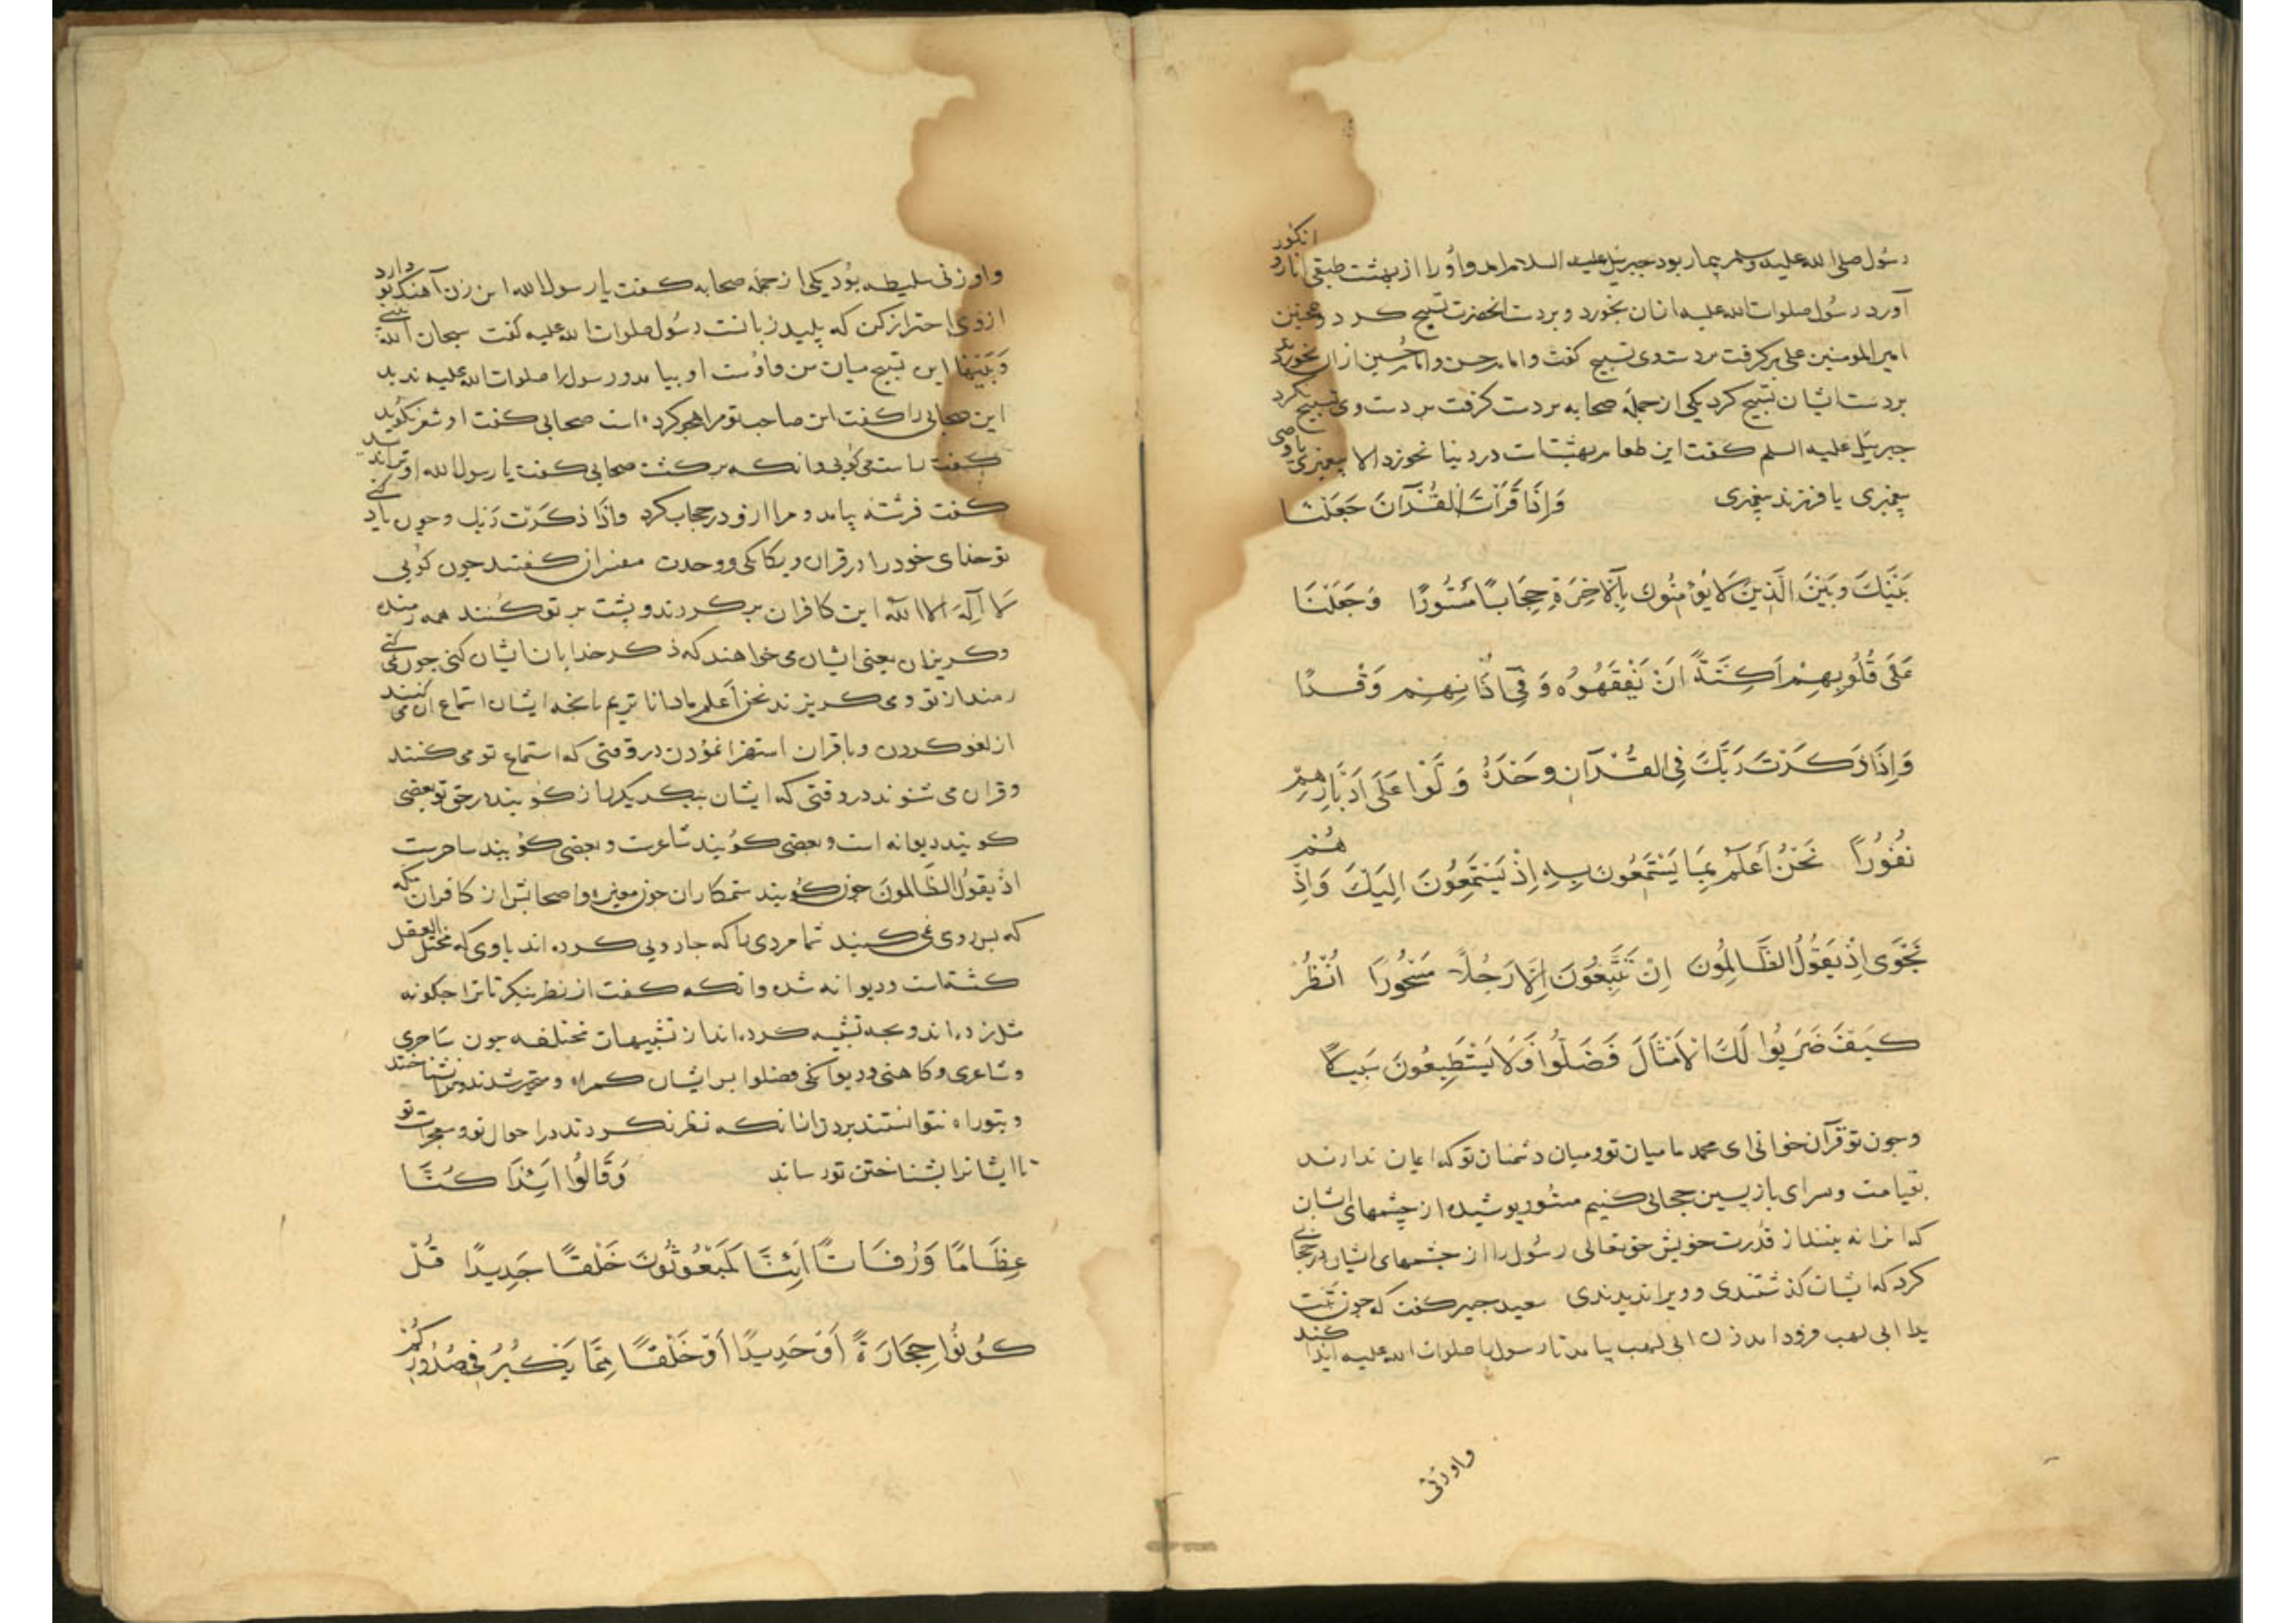 رسول صلی الله علیه وسلم بیمار بود جبرئیل علیه السلام امد و او را از بهشت طبقی انار و انکور
آورد رسول صلوات الله علیه ازان بخورد و بر دست انحضرت تسبیح کرد و همچنین
امیر المومنین علی برکرفت بر دست وی تسبیح کفت و امام حسن و امام حسین ازان بخوردند
بر دست ایشان تسبیح کرد یکی از جمله صحابه بر دست کرفت بر دست وی تسبیح نکرد
جبرئیل علیه السلم کفت این طعام بهشتست در دنیا نخورد الا پیغمبری یا وصی
پیغمبری یا فرزند پیغمبری وَاِذَا قَرَأتَ القُرآنَ جَعَلنَا
بَیْنَكَ وَبَیْنَ الَّذِینَ لَا یُؤْمِنُونَ بِالْآخِرَةِ حِجَابًا مَسْتُورًا وَجَعَلْنَا
عَلَی قُلُوبِهِمْ اَكِنَّةً اَنْ یَفْقَهُوهُ وَفِی آذَانِهِمْ وَقْرًا
وَاِذَا ذَكَرْتَ رَبَّكَ فِی القُرْآنِ وَحْدَهُ وَلَّوْا عَلَی اَدْبَارِهِمْ
نُفُورًا نَحْنُ اَعْلَمُ بِمَا یَسْتَمِعُونَ بِهِ اِذْ یَسْتَمِعُونَ اِلَیْكَ وَاِذْ هُمْ
نَجْوَی اِذْ یَقُولُ الظَّالِمُونَ اِنْ تَتَّبِعُونَ اِلَّا رَجُلًا مَسْحُورًا اُنْظُرْ
كَیْفَ ضَرَبُوا لَكَ الْاَمْثَالَ فَضَلُّوا فَلَا یَسْتَطِیعُونَ سَبِیلًا
و جون تو قرآن خوانی ای محمد ما میان تو و میان دشمنان تو که ایمان ندارند
بقیامت و سرای بازپسین حجابی کنیم مستور پوشیده از چشمهای ایشان
که انرا نه بینند از قدرت خویش حق تعالی رسول را از چشمهای ایشان در حجابی
کرد که ایشان کذشتندی و ویرا ندیدندی سعید جبیر کفت که جون تبت
یدا ابی لهب فرود امد زن ابی لهب بیامد تا رسول را صلوات الله علیه ایذا کند
واو زنی
واو زنی سلیطه بود یکی از جمله صحابه کفت یا رسول الله این زن آهنک تو دارد
از وی احتراز کن که پلید زبانست رسول صلوات الله علیه کفت سبحان الله بینی
وبینها این تسبیح میان من و اوست او بیامد و رسول را صلوات الله علیه ندید
این صحابی را کفت این صاحب تو مرا هجو کرده است صحابی کفت او شعر نکوید
کفت راست می کویی وانکه برکشت صحابی کفت یا رسول الله او ترا ندید
کفت فرشته بیامد و مرا ازو در حجاب کرد واذا ذکرت ربک و چون یاد کنی
تو خدای خود را در قران و یکانکی و وحدت مفسران کفتند جون کویی
لا اله الا الله این کافران برکردند و پشت بر تو کنند همه رمنده
و کریزان یعنی ایشان می خواهند که ذکر خدایان ایشان کنی جون می کنی
رمند از تو و می کریزند نحن اعلم ما داناتریم بانچه ایشان استماع ان می کنند
از لغو کردن و با قران استهزا نمودن در وقتی که استماع تو می کنند
و قران می شنوند در وقتی که ایشان بیکدیکر راز کویند در حق تو بعضی
کویند دیوانه است و بعضی کویند شاعرست و بعضی کویند ساحرست
اذ یقول الظالمون جون کویند ستمکاران جون مغیره و اصحابش از کافران مکه
که پیروی نمی کنید شما مردی را که جادویی کرده اند با وی که مختل العقل
کشته است و دیوانه شده وانکه کفت انظر بنکر تا ترا جکونه
مثل زده اند و بجه تشبیه کرده اند از تشبیهات مختلفه جون ساحری
و شاعری و کاهنی و دیوانکی فضلوا پس ایشان کمراه و متحیر شدند و ترا نشناختند
و بتو راه نتوانستند بردن انانکه نظر نکردند در احوال تو و معجزات تو
تا ایشانرا بشناختن تو رساند وَقَالُوا اَئِذَا كُنَّا
عِظَامًا وَرُفَاتًا اَئِنَّا لَمَبْعُوثُونَ خَلْقًا جَدِیدًا قُلْ
كُونُوا حِجَارَةً اَوْ حَدِیدًا اَوْ خَلْقًا مِمَّا یَكْبُرُ فِی صُدُورِكُمْ